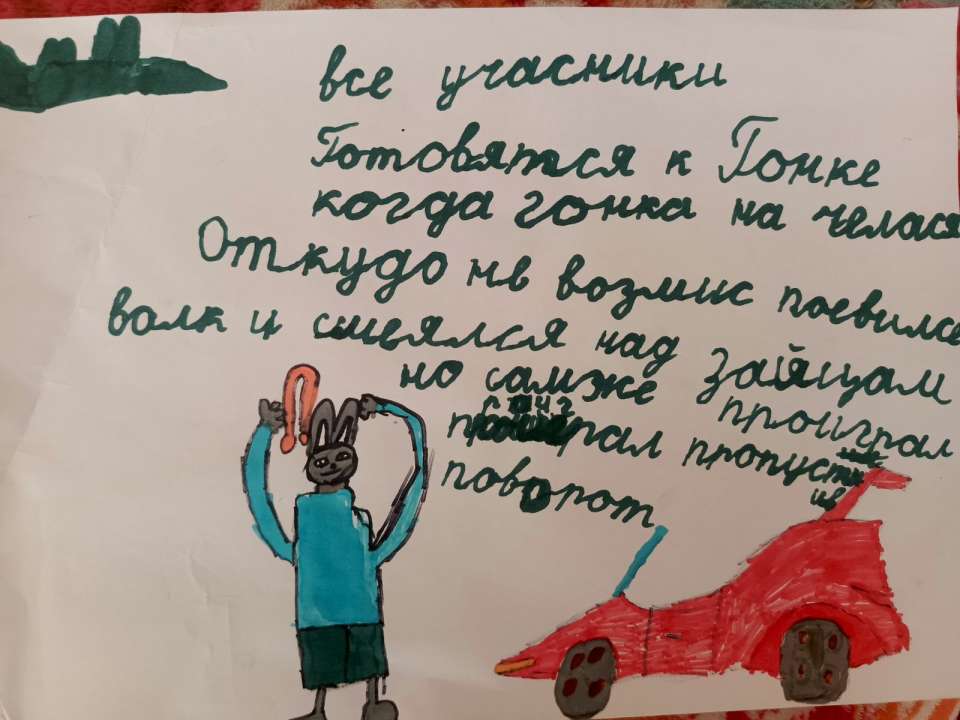 все учасники
Готовятся к Гонке
когда гонка на челася
Откудо не возмис поевилсе
волк и смеялся над Зайяцам
но самже проиграл
рал пропуст
ив
поворот